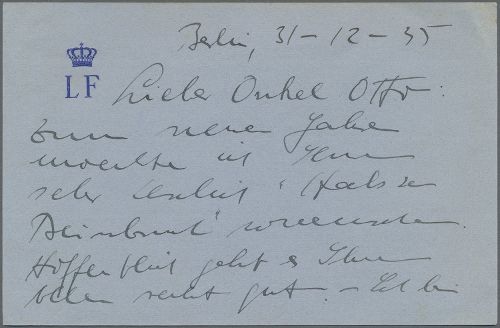 Berlin, 31-12-35
LF
Lieber Onkel Otto:
Zum neuen Jahre
moechte ich Ihnen
sehr herzlich "Hals u
Beinbruch" wuenschen.
Hoffentlich geht es Ihnen
allen recht gut. – Ich bin